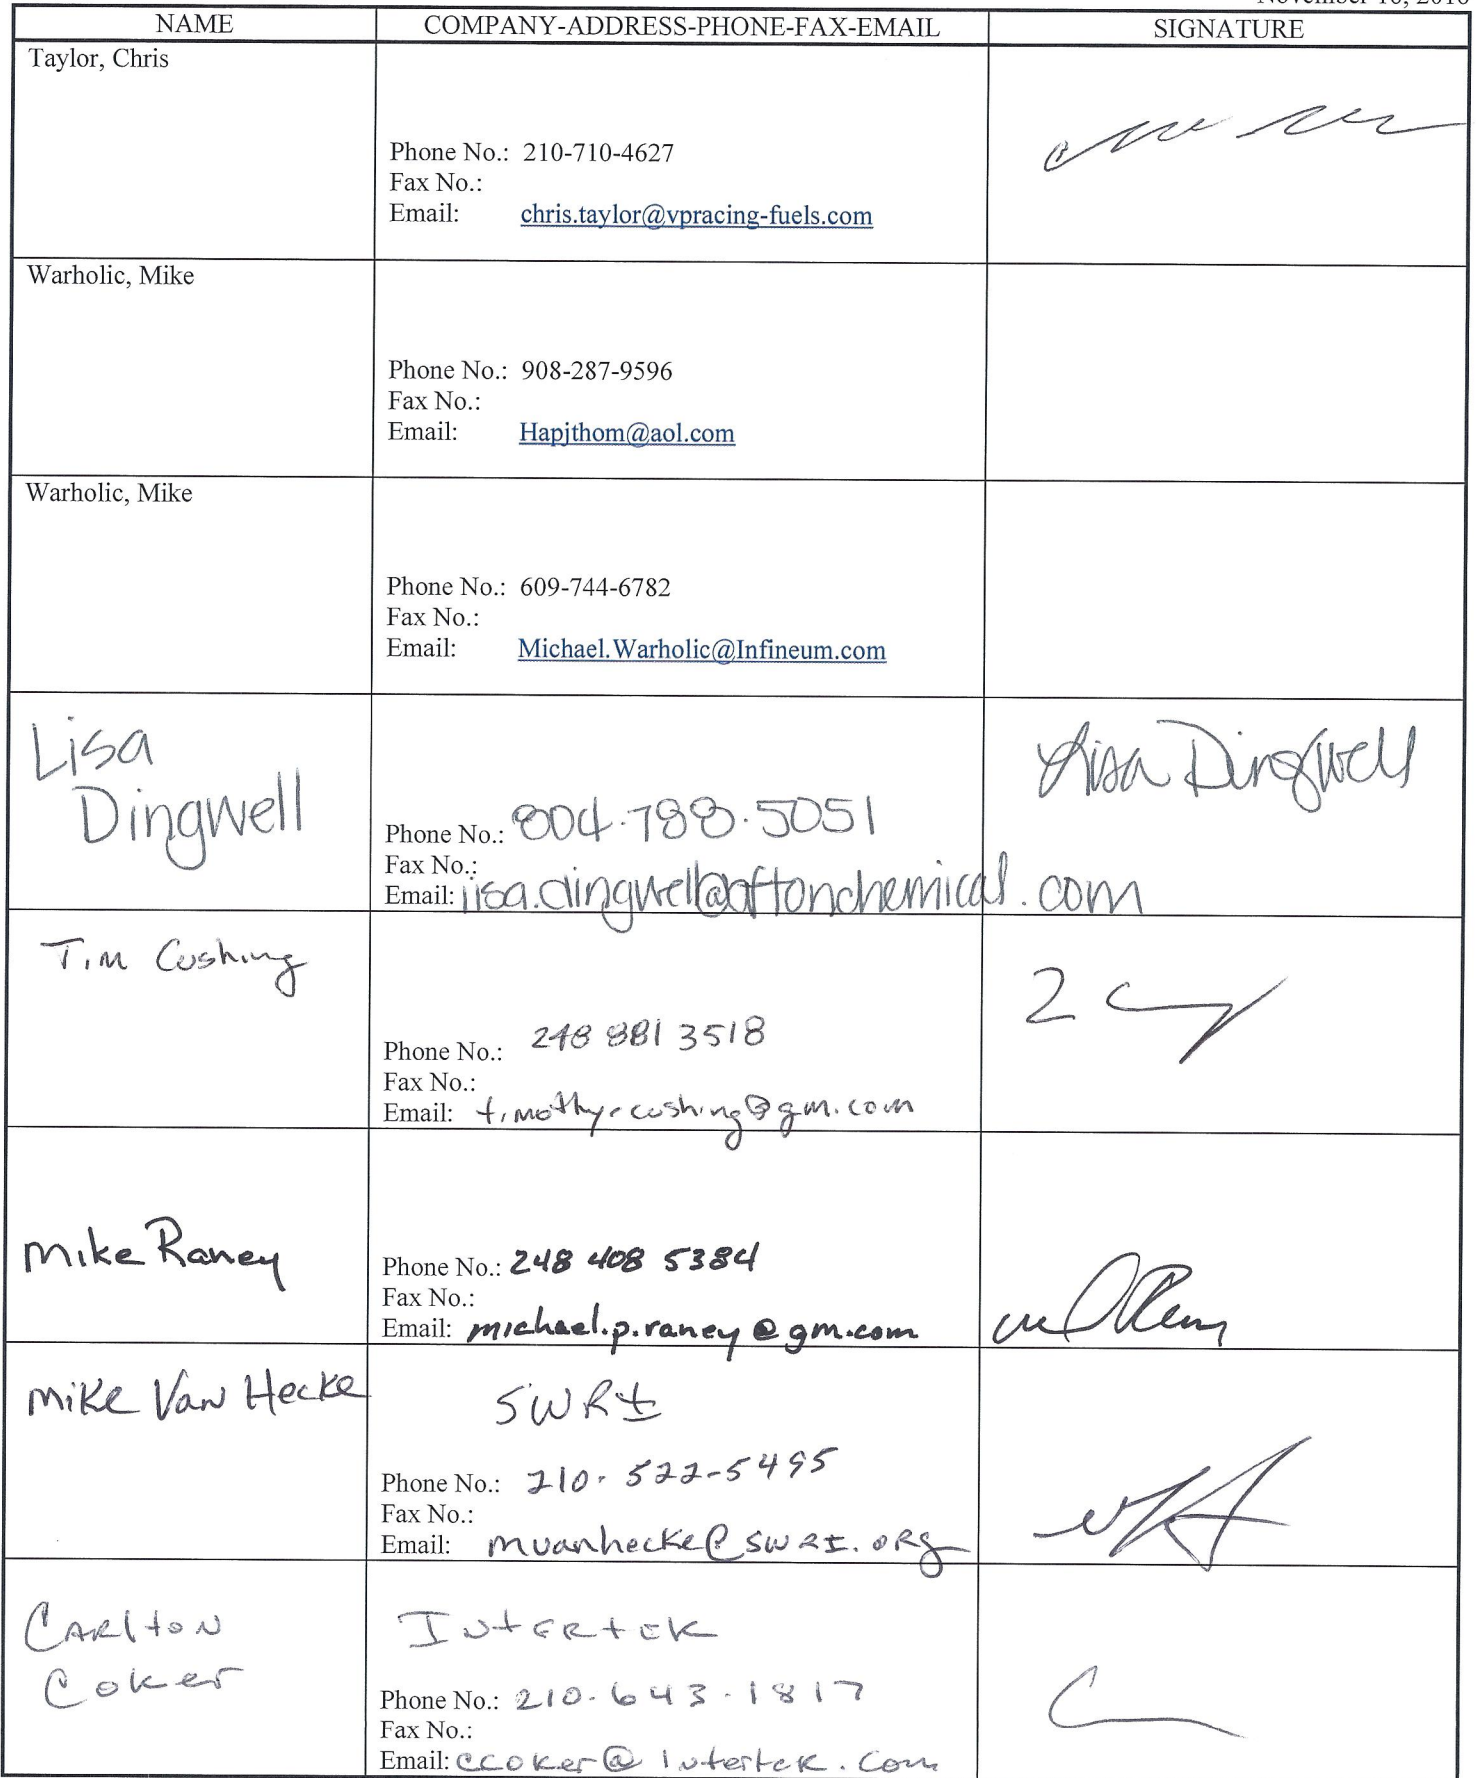 NAME COMPANY-ADDRESS-PHONE-FAX-EMAIL SIGNATURE
Taylor, Chris
Phone No.: 210-710-4627
Fax No.:
Email: chris.taylor@vpracing-fuels.com
Warholic, Mike
Phone No.: 908-287-9596
Fax No.:
Email: Hapjthom@aol.com
Warholic, Mike
Phone No.: 609-744-6782
Fax No.:
Email: Michael.Warholic@Infineum.com
Lisa
Dingwell
Lisa Dingwell
Phone No.: 804.788.5051
Fax No.:
Email: lisa.dingwell@aftonchemical.com
Tim Cushing
Phone No.: 248 881 3518
Fax No.:
Email: timothy.cushing@gm.com
Mike Raney
Phone No.: 248 408 5384
Fax No.:
Email: michael.p.raney@gm.com
Mike Van Hecke
SWRI
Phone No.: 210-522-5495
Fax No.:
Email: mvanhecke@SWRI.ORg
CARlton
Coker
INtERtEK
Phone No.: 210-643-1817
Fax No.:
Email: ccoker@intertek.com